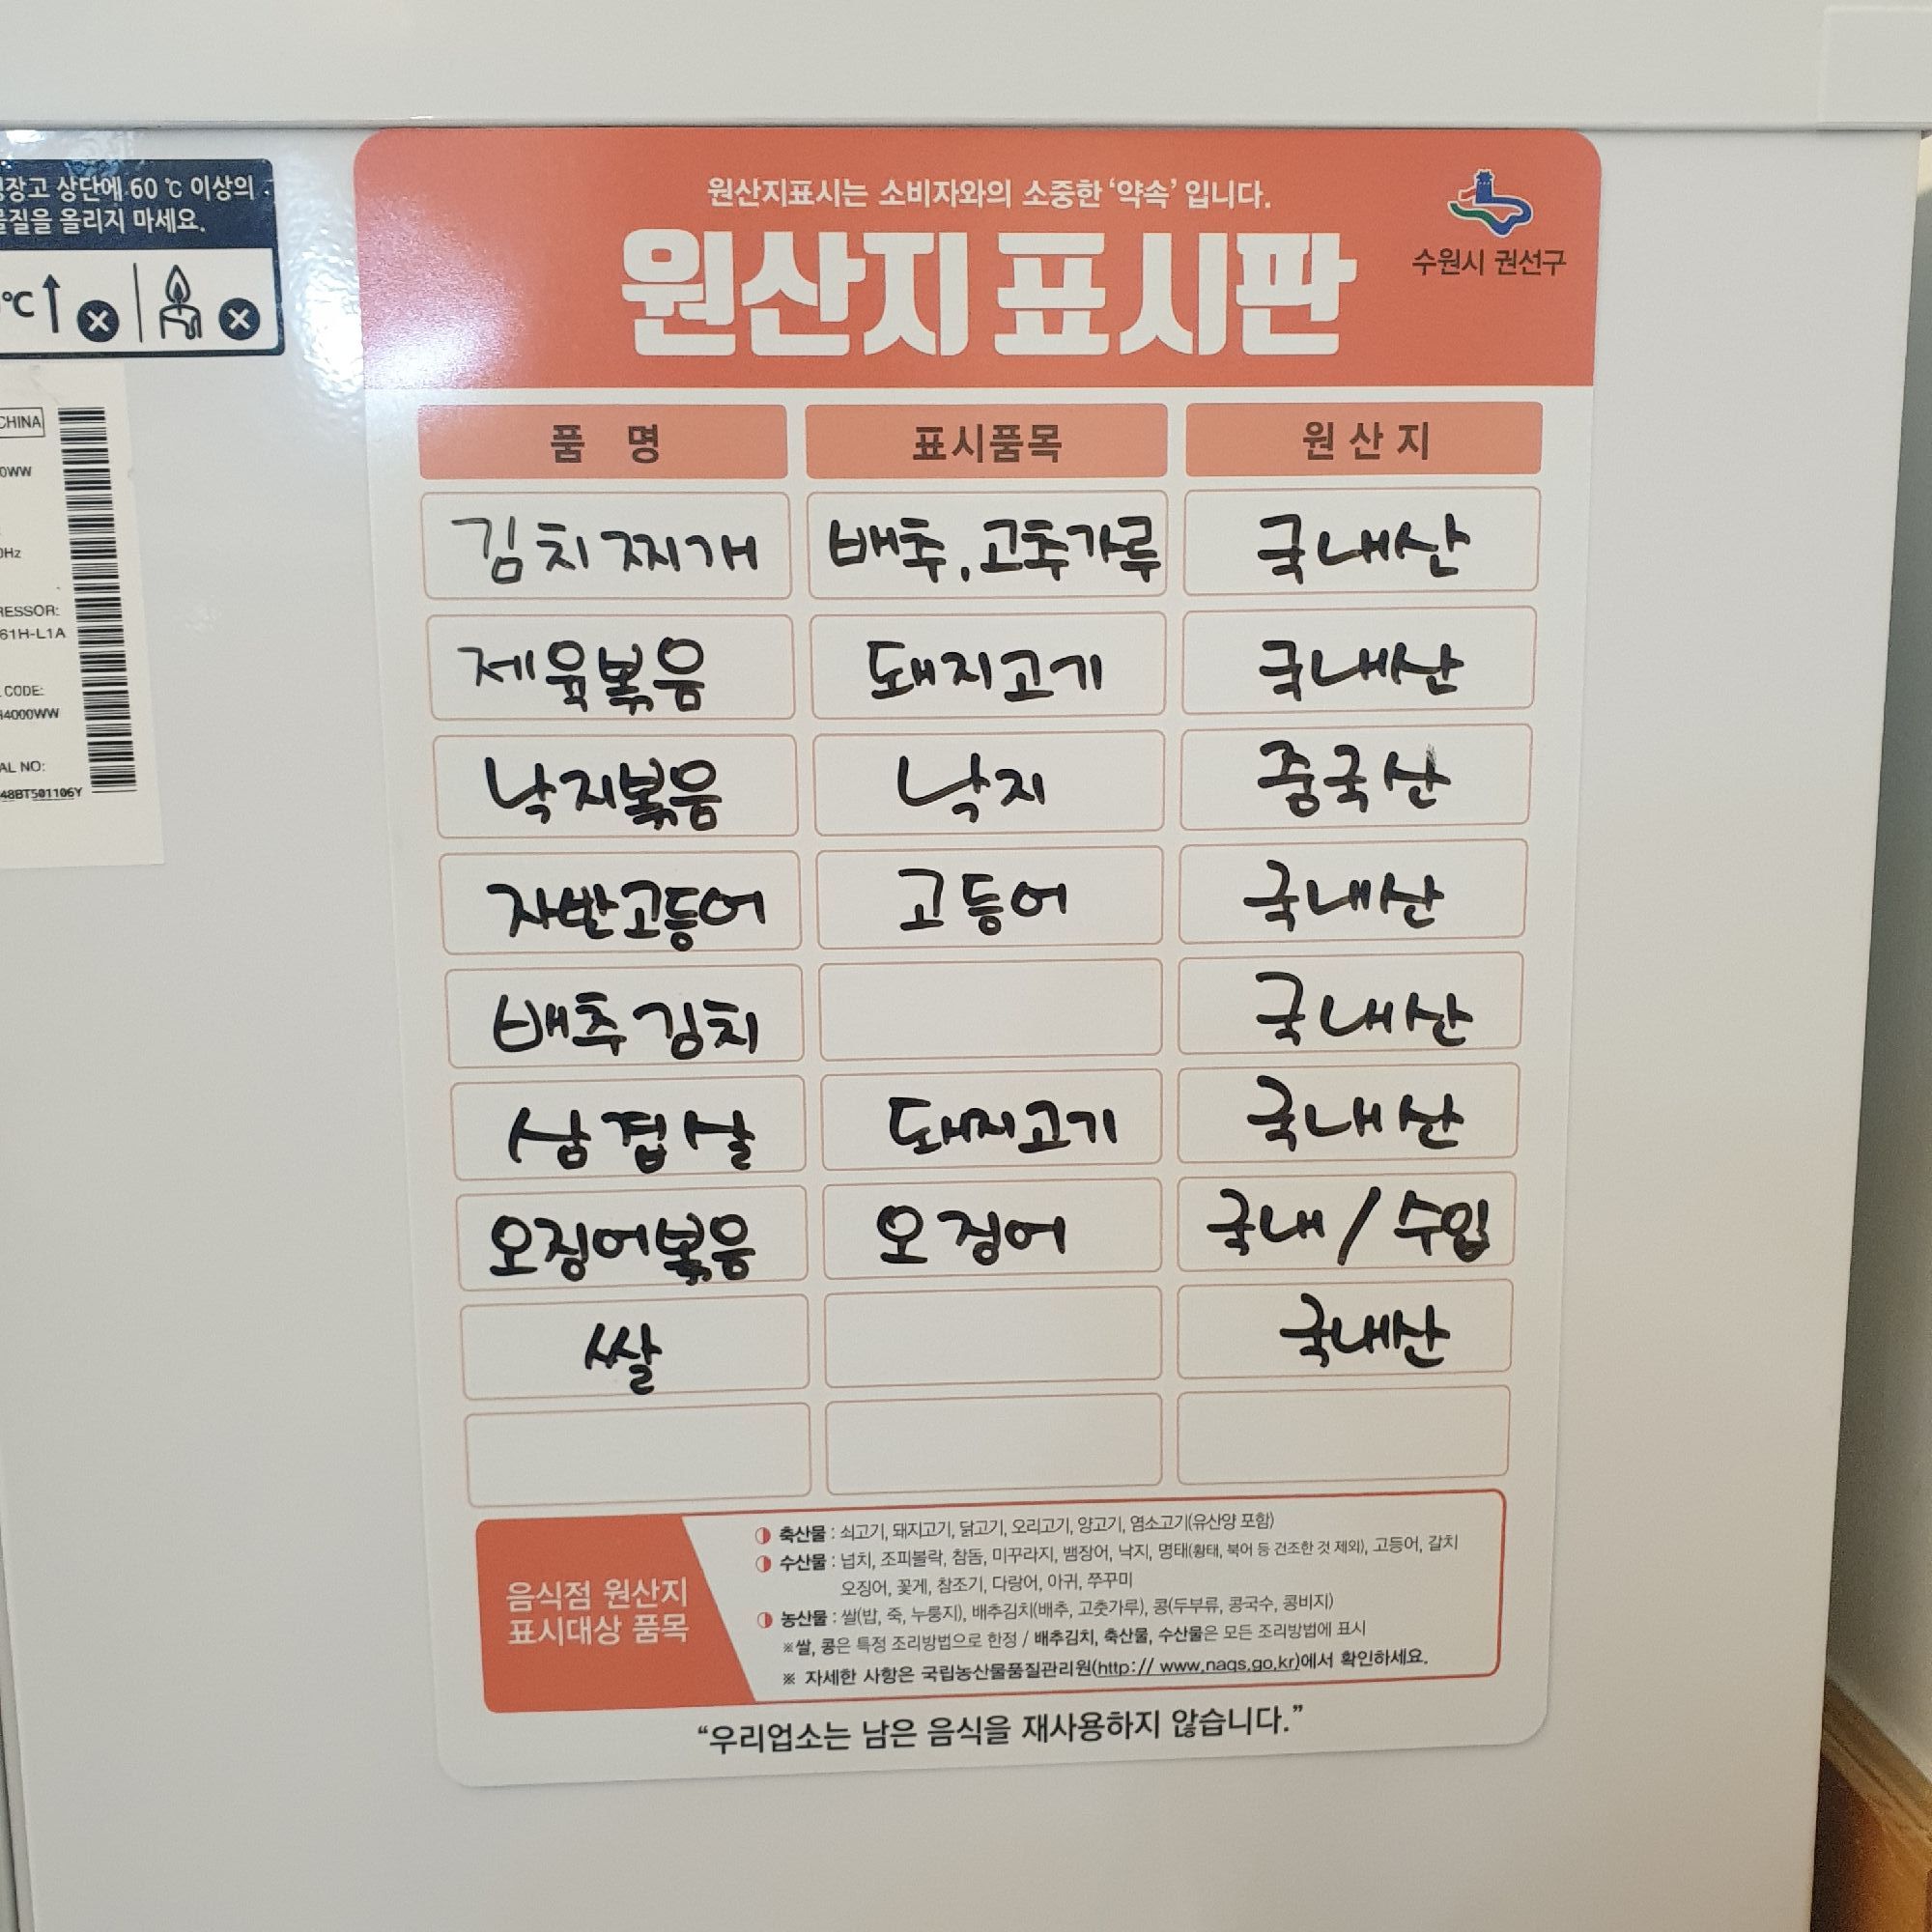 상단에 60 ℃ 이상의
올리지 마세요.
℃
CHINA
CODE:
NO:
48BT501106Y
원산지표시는 소비자와의 소중한 ‘약속’ 입니다.
원산지 표시판
수원시 권선구
품 명 표시품목 원 산 지
김치찌개 배추, 고추가루 국내산
제육볶음 돼지고기 국내산
낙지볶음 낙지 중국산
자반고등어 고등어 국내산
배추김치 국내산
삼겹살 돼지고기 국내산
오징어볶음 오징어 국내/수입
쌀 국내산
음식점 원산지
표시대상 품목
축산물 : 쇠고기, 돼지고기, 닭고기, 오리고기, 양고기, 염소고기(유산양 포함)
수산물 : 넙치, 조피볼락, 참돔, 미꾸라지, 뱀장어, 낙지, 명태(황태, 북어 등 건조한 것 제외), 고등어, 갈치
오징어, 꽃게, 참조기, 다랑어, 아귀, 쭈꾸미
농산물 : 쌀(밥, 죽, 누룽지), 배추김치(배추, 고춧가루), 콩(두부류, 콩국수, 콩비지)
※쌀, 콩은 특정 조리방법으로 한정 / 배추김치, 축산물, 수산물은 모든 조리방법에 표시
※ 자세한 사항은 국립농산물품질관리원(http:// www.naqs.go.kr)에서 확인하세요.
“우리업소는 남은 음식을 재사용하지 않습니다.”